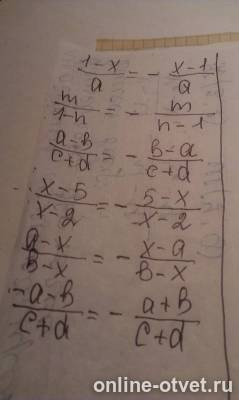 (1-x)/a = - (x-1)/a
m/(1-n) = - m/(n-1)
(a-b)/(c+d) = - (b-a)/(c+d)
(x-5)/(x-2) = - (5-x)/(x-2)
(a-x)/(b-x) = - (x-a)/(b-x)
(-a-b)/(c+d) = - (a+b)/(c+d)
online-otvet.ru